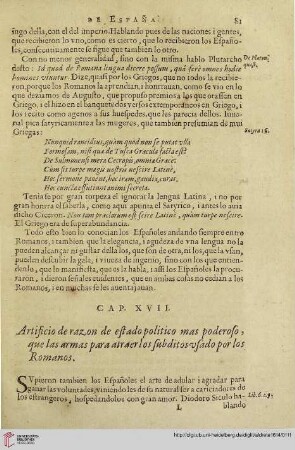 DE ESPAÑA. 81
singo della, con el del imperio. Hablando pues de las naciones i gentes,
que recibieron lo vno, como es cierto, que lo recibieron los Españo-
les, consecutivamente se sigue que tambien lo otro.
Con no menor generalidad, sino con la misma hablo Plutarcho
desto: Id quod de Romana lingua dicere possum, qua ferè omnes hodie
homines vtuntur. Dize, quasi por los Griegos, que no todos la recibie-
ron, porque los Romanos la aprendian, i hablavan, como se vio en lo
que deziamos de Augusto, que propuso premios a los que orassen en
Griego, i el hizo en el banquete dos versos extemporaneos en Griego, i
los recito como agenos a sus huespedes, que les parecia dellos. Iuve-
nal pica satyricamente a las mugeres, que tambien presumian de mui
Griegas:
Nam quid rancidius, quàm quod nuse putat vlla
Formosam, nisi qua de Tusca Gracula facta est?
De Sulmonensi mera Cecropis, omnia Grace:
Cum sit turpe magis nostris nescire Latinè,
Hoc sermone pavent, hoc iram, gaudia, curas,
Hoc cuncta effundunt animi secreta.
Tenian se por gran torpeza el ignorar la lengua Latina, i no por
gran honra el saberla, como aqui apunta el Satyrico, i antes lo avia
dicho Ciceron. Non tam praclarum est scire Latinè, quàm turpe nescire.
El Griego era de superabundancia.
Todo esto bien lo conocian los Españoles andando siempre entre
Romanos, i tambien que la elegancia, i agudeza de vna lengua no la
pueden alcançar ni gustar della los, que son de otra, ni los, que la vsan,
pueden descubrir la gala, i viveza de ingenio, sino con los que entien-
den, lo que manifiesta, que es la habla, i assi los Españoles la procu-
raron, i dieron señales evidentes, que en ambas cosas no cedian a los
Romanos, i en muchas se les aventajavan.
CAP. XVII.
Artificio de razon de estado politico mas poderoso,
que las armas para atraer los subditos vsado por los
Romanos.
SVpieron tambien los Españoles el arte de adular i agradar para
ganar las voluntades, viniendoles de su natural ser acariciadores de
los estrangeros, hospedandolos con gran amor. Diodoro Siculo ha-
L blando